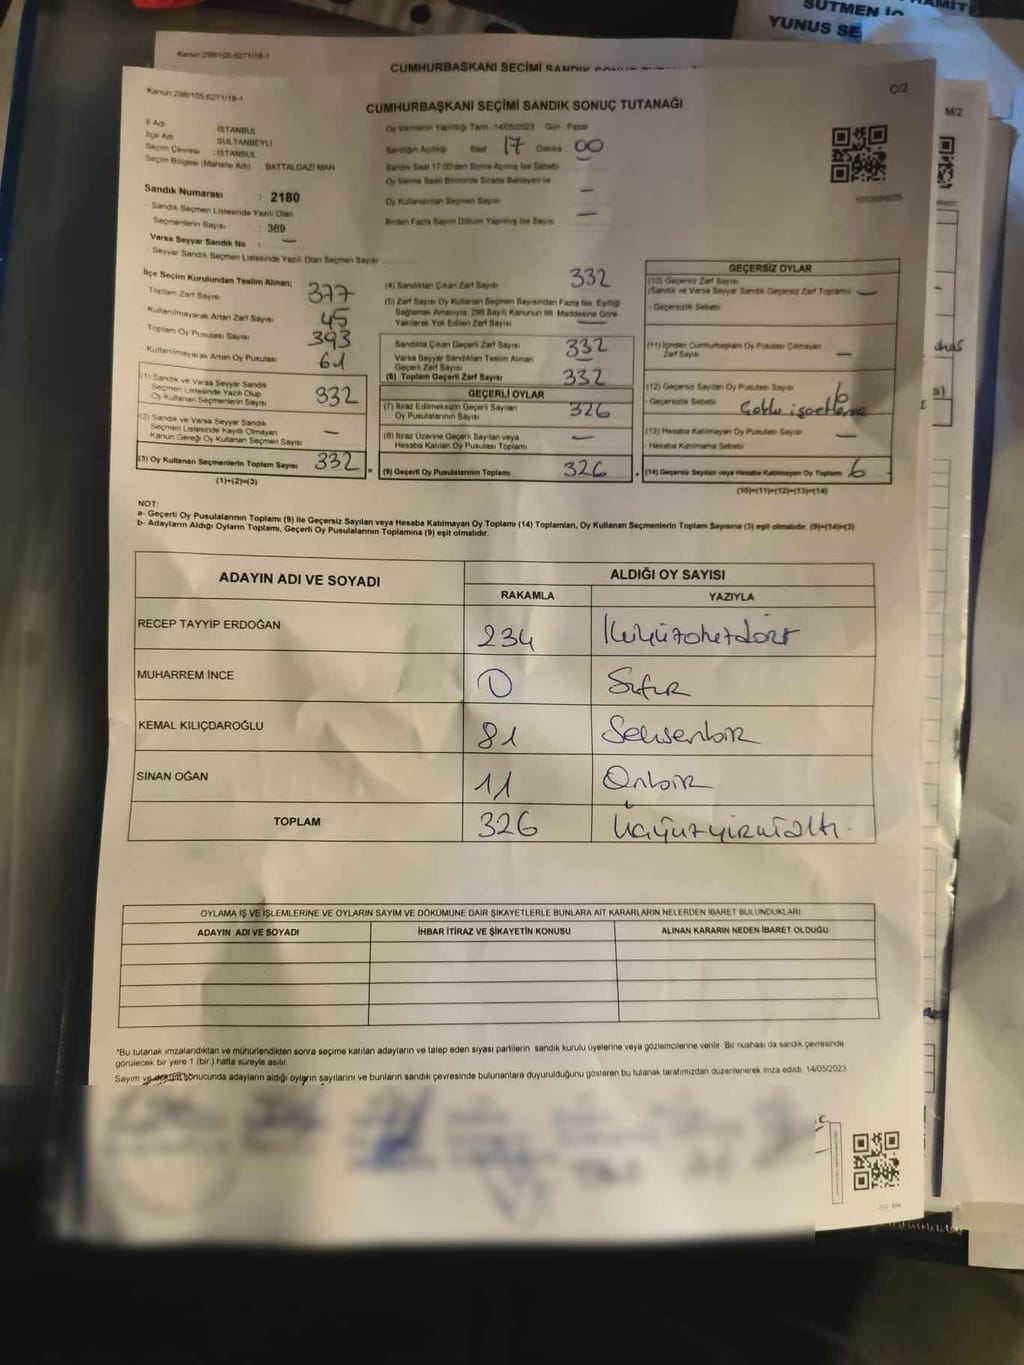 SUTMEN
YUNUS SE
HAMİT
Kanun:298/105,6271/18-1
CUMHURBAŞKANI SEÇİMİ SANDIK SONUÇ TUTANAĞI
M/2
Kanun:298/105,6271/18-1
C/2
CUMHURBAŞKANI SEÇİMİ SANDIK SONUÇ TUTANAĞI
İl Adı : İSTANBUL
İlçe Adı : SULTANBEYLİ
Seçim Çevresi : İSTANBUL
Seçim Bölgesi (Mahalle Adı) : BATTALGAZİ MAH
Sandık Numarası : 2180
- Sandık Seçmen Listesinde Yazılı Olan
Seçmenlerin Sayısı : 369
Varsa Seyyar Sandık No : —
- Seyyar Sandık Seçmen Listesinde Yazılı Olan Seçmen Sayısı
Oy Vermenin Yapıldığı Tarih :14/05/2023 Gün : Pazar
Sandığın Açıldığı Saat 17 Dakika 00
Sandık Saat 17:00'den Sonra Açılmış İse Sebebi
Oy Verme Saati Bitiminde Sırada Bekleyen ve
Oy Kullandırılan Seçmen Sayısı —
Birden Fazla Sayım Döküm Yapılmış İse Sayısı —
İlçe Seçim Kurulundan Teslim Alınan;
- Toplam Zarf Sayısı 377
- Kullanılmayarak Artan Zarf Sayısı 45
- Toplam Oy Pusulası Sayısı 393
- Kullanılmayarak Artan Oy Pusulası 61
(1) Sandık ve Varsa Seyyar Sandık
Seçmen Listesinde Yazılı Olup
Oy Kullanan Seçmenlerin Sayısı 332
(2) Sandık ve Varsa Seyyar Sandık
Seçmen Listesinde Kayıtlı Olmayan
Kanun Gereği Oy Kullanan Seçmen Sayısı —
(3) Oy Kullanan Seçmenlerin Toplam Sayısı 332
(1)+(2)=(3)
(4) Sandıktan Çıkan Zarf Sayısı 332
(5) Zarf Sayısı Oy Kullanan Seçmen Sayısından Fazla İse, Eşitliği
Sağlamak Amacıyla, 298 Sayılı Kanunun 98. Maddesine Göre
Yakılarak Yok Edilen Zarf Sayısı —
Sandıkta Çıkan Geçerli Zarf Sayısı 332
Varsa Seyyar Sandıktan Teslim Alınan
Geçerli Zarf Sayısı —
(6) Toplam Geçerli Zarf Sayısı 332
GEÇERLİ OYLAR
(7) İtiraz Edilmeksizin Geçerli Sayılan
Oy Pusulalarının Sayısı 326
(8) İtiraz Üzerine Geçerli Sayılan veya
Hesaba Katılan Oy Pusulası Toplamı —
(9) Geçerli Oy Pusulalarının Toplamı 326
GEÇERSİZ OYLAR
(10) Geçersiz Zarf Sayısı
(Sandık ve Varsa Seyyar Sandık Geçersiz Zarf Toplamı) —
- Geçersizlik Sebebi
(11) İçinden Cumhurbaşkanı Oy Pusulası Çıkmayan
Zarf Sayısı —
(12) Geçersiz Sayılan Oy Pusulası Sayısı 6
- Geçersizlik Sebebi
(13) Hesaba Katılmayan Oy Pusulası Sayısı —
Hesaba Katılmama Sebebi
(14) Geçersiz Sayılan veya Hesaba Katılmayan Oy Toplamı 6
(10)+(11)+(12)+(13)=(14)
NOT:
a- Geçerli Oy Pusulalarının Toplamı (9) ile Geçersiz Sayılan veya Hesaba Katılmayan Oy Toplamı (14) Toplamları, Oy Kullanan Seçmenlerin Toplam Sayısına (3) eşit olmalıdır. (9)+(14)=(3)
b- Adayların Aldığı Oyların Toplamı, Geçerli Oy Pusulalarının Toplamına (9) eşit olmalıdır.
ADAYIN ADI VE SOYADI
ALDIĞI OY SAYISI
RAKAMLA YAZIYLA
RECEP TAYYİP ERDOĞAN 234 İkiyüzotuzdört
MUHARREM İNCE 0 Sıfır
KEMAL KILIÇDAROĞLU 81 Seksenbir
SİNAN OĞAN 11 Onbir
TOPLAM 326 Üçyüzyirmialtı.
OYLAMA İŞ VE İŞLEMLERİNE VE OYLARIN SAYIM VE DÖKÜMÜNE DAİR ŞİKAYETLERLE BUNLARA AİT KARARLARIN NELERDEN İBARET BULUNDUKLARI
ADAYIN ADI VE SOYADI İHBAR İTİRAZ VE ŞİKAYETİN KONUSU ALINAN KARARIN NEDEN İBARET OLDUĞU
*Bu tutanak imzalandıktan ve mühürlendikten sonra seçime katılan adayların ve talep eden siyasi partilerin sandık kurulu üyelerine veya gözlemcilerine verilir. Bir nüshası da sandık çevresinde
görülecek bir yere 1 (bir) hafta süreyle asılır.
Sayım ve döküm sonucunda adayların aldığı oyların sayılarını ve bunların sandık çevresinde bulunanlara duyurulduğunu gösteren bu tutanak tarafımızdan düzenlenerek imza edildi. 14/05/2023